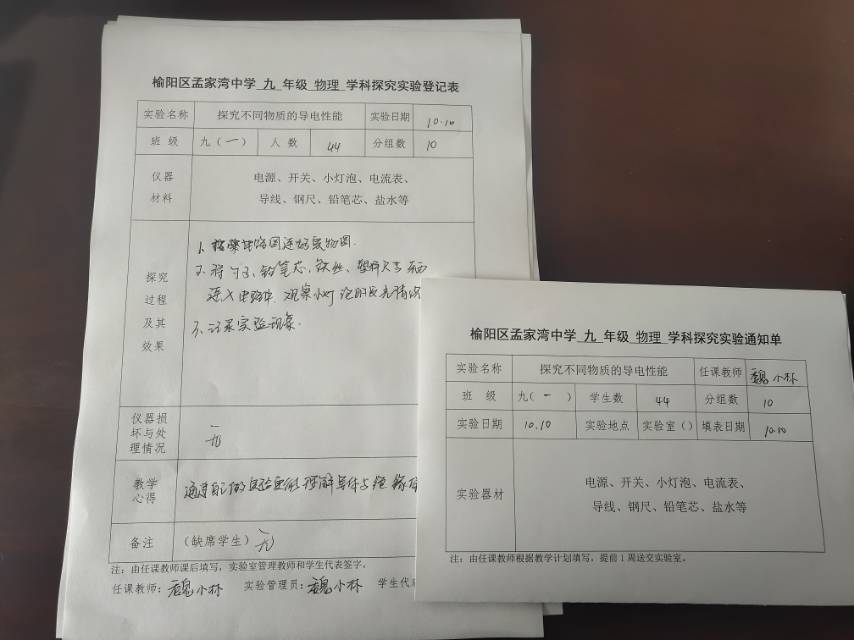 榆阳区孟家湾中学 九 年级 物理 学科探究实验登记表
实验名称 探究不同物质的导电性能 实验日期 10.10
班 级 九（一） 人 数 44 分组数 10
仪器 材料 电源、开关、小灯泡、电流表、
导线、钢尺、铅笔芯、盐水等
探究 过程 及其 效果
1、根据电路图连好实物图.
2、将 铅笔芯、铁丝、塑料尺等
连入电路中，观察小灯泡的发光情况
3、记录实验现象.
仪器损 坏与处 理情况 无
教学 心得 通过自己做实验 理解导体与绝缘体
备注 （缺席学生） 无
注：由任课教师课后填写，实验室管理教师和学生代表签字。
任课教师：魏小林 实验管理员：魏小林 学生代表
榆阳区孟家湾中学 九 年级 物理 学科探究实验通知单
实验名称 探究不同物质的导电性能 任课教师 魏小林
班 级 九（一） 学生数 44 分组数 10
实验日期 10.10 实验地点 实验室（） 填表日期 10.10
实验器材 电源、开关、小灯泡、电流表、
导线、钢尺、铅笔芯、盐水等
注：由任课教师根据教学计划填写，提前1周送交实验室。